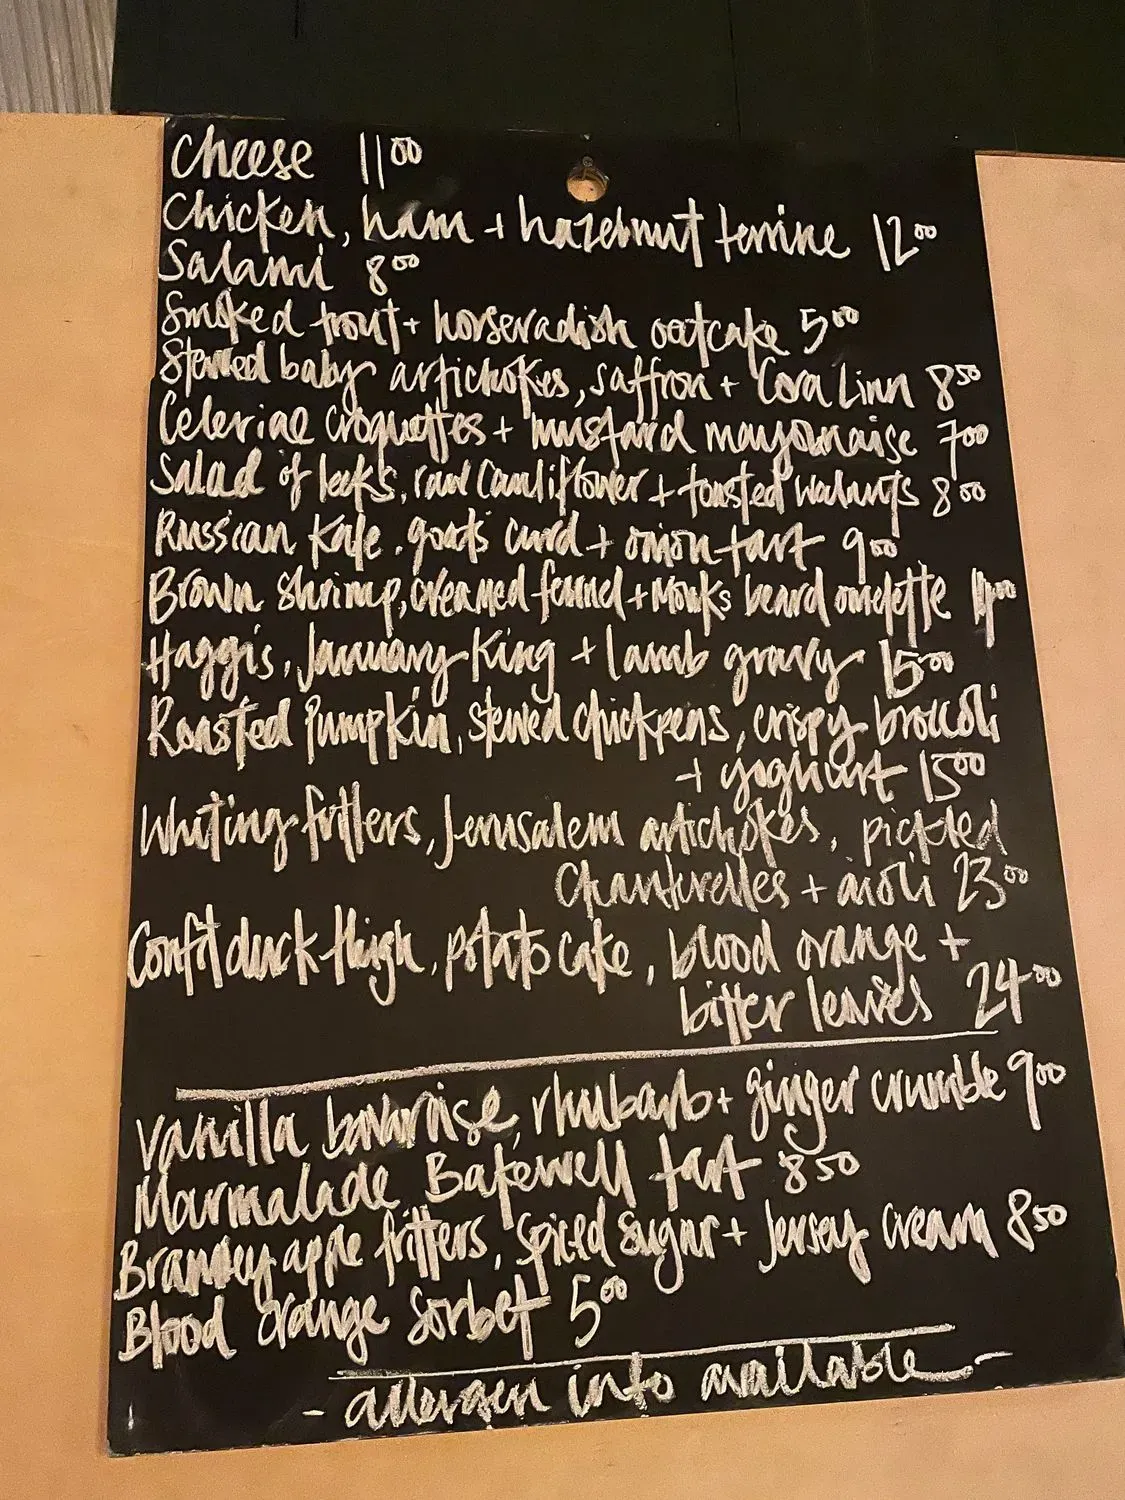 Cheese 11 00
Chicken, ham + hazelnut terrine 12 00
Salami 8 00
Smoked trout + horseradish oatcake 5 00
Stewed baby artichokes, saffron + Cora Linn 8 50
Celeriac croquettes + mustard mayonnaise 7 00
Salad of leeks, raw cauliflower + toasted walnuts 8 00
Russian Kale, goats curd + onion tart 9 00
Brown shrimp, creamed fennel + Monks beard omelette
Haggis, January King + lamb gravy 15 00
Roasted Pumpkin, stewed chickpeas, crispy broccoli
+ yoghurt 15 00
Whiting fritters, Jerusalem artichokes, pickled
Chanterelles + aioli 23 00
Confit duck thigh, potato cake, blood orange +
bitter leaves 24 00
Vanilla bavaroise, rhubarb + ginger crumble 9 00
Marmalade Bakewell tart 8 50
Bramley apple fritters, spiced sugar + Jersey cream 8 50
Blood orange sorbet 5 00
- allergen info available -